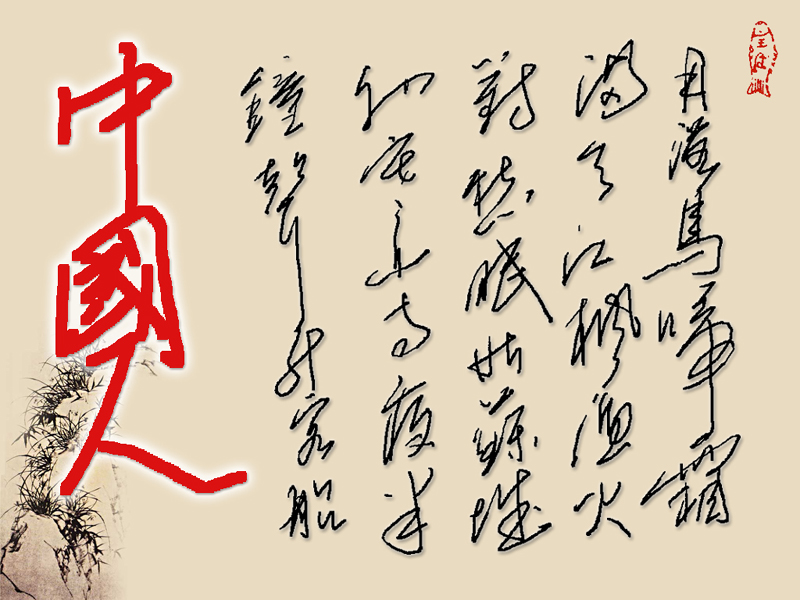 月落烏啼霜
滿天江楓漁火
對愁眠姑蘇城
外寒山寺夜半
鐘聲到客船
中國人